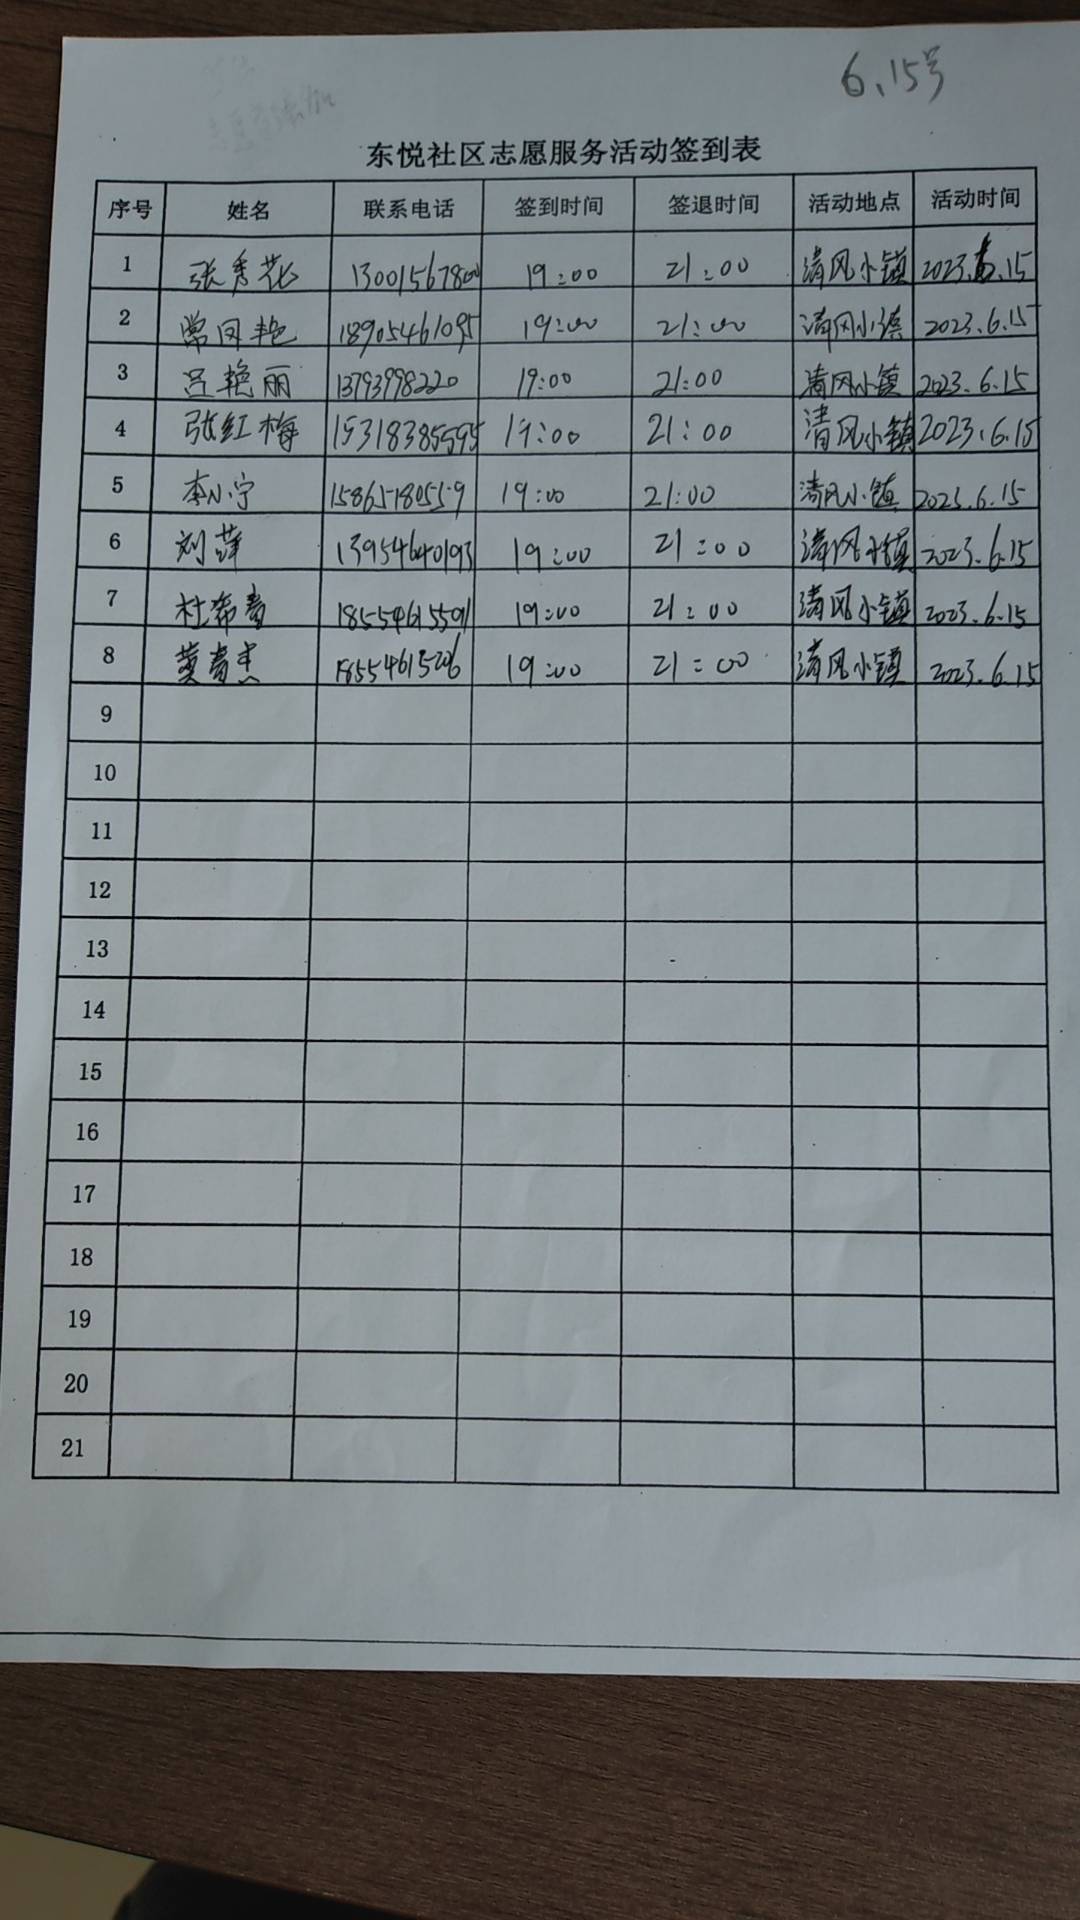 6.15号
东悦社区志愿服务活动签到表
序号 姓名 联系电话 签到时间 签退时间 活动地点 活动时间
1 张秀花 13001567800 19:00 21:00 清风小镇 2023.6.15
2 常凤艳 18905461095 19:00 21:00 清风小镇 2023.6.15
3 吕艳丽 13793998220 19:00 21:00 清风小镇 2023.6.15
4 张红梅 15318385595 19:00 21:00 清风小镇 2023.6.15
5 李小宁 15865780559 19:00 21:00 清风小镇 2023.6.15
6 刘萍 13954640193 19:00 21:00 清风小镇 2023.6.15
7 杜希青 18554615591 19:00 21:00 清风小镇 2023.6.15
8 黄青杰 18554615206 19:00 21:00 清风小镇 2023.6.15
9
10
11
12
13
14
15
16
17
18
19
20
21